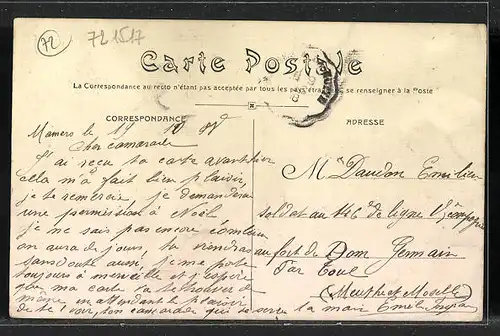 72
721517
Carte Postale
La Correspondance au recto n'étant pas acceptée par tous les pays étrangers, se renseigner à la Poste
CORRESPONDANCE
ADRESSE
Mamers le 19 10
Cher camarade
J'ai reçu ta carte avant hier
cela m'a fait bien plaisir,
je te remercie, je demanderai
une permission à Noël
je ne sais pas encore combien
on aura de jours, tu viendras
sans doute aussi, je me porte
toujours à merveille et j'espère
que ma carte te trouvera de
même en attendant le plaisir
de te voir, ton camarade qui te serre la main
M. Daudon Emilien
soldat au 146e de ligne
au fort de Dom Germain
Par Toul
(Meurthe et Moselle)